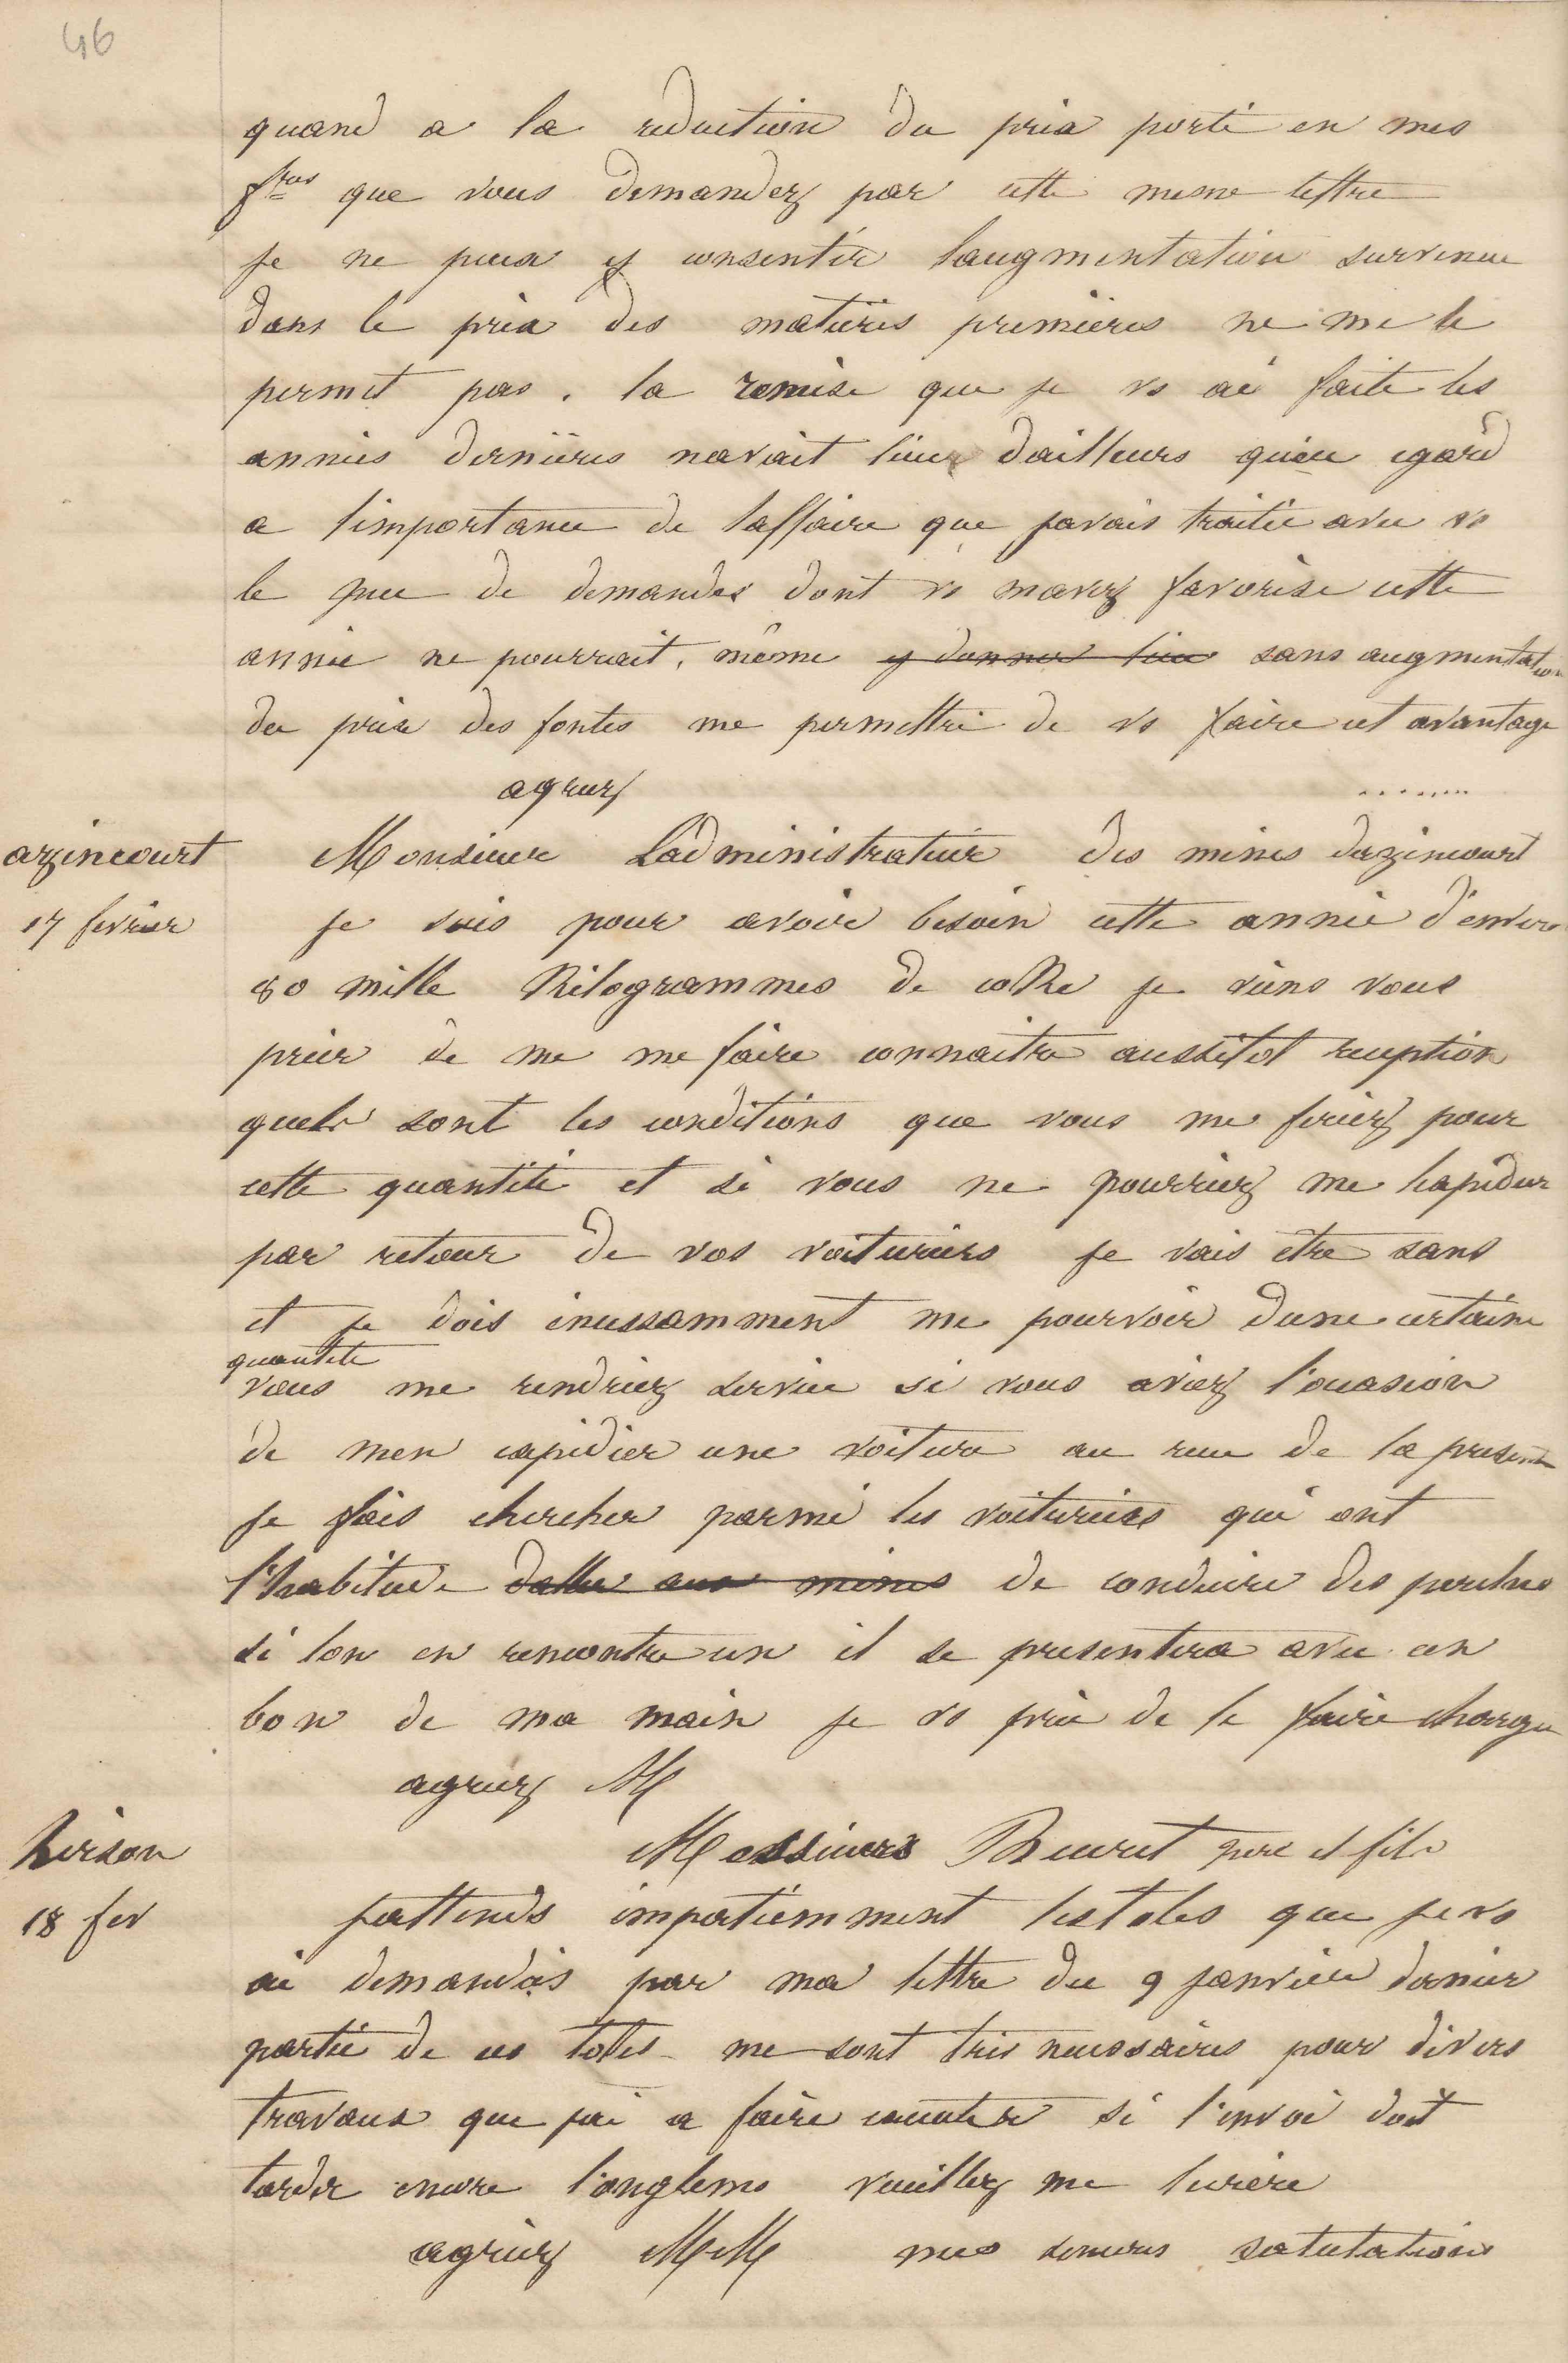 46
quand a la reduction du prix porté en mes
fres que vous demandez par cette meme lettre
je ne puis y consentir laugmentation survenue
dans le prix des matières premières ne me le
permet pas. la remise que je vs ai faite les
années dernières navait lieu dailleurs quen egard
a limportance de laffaire que javais traitée avec vs
le peu de demandes dont vs mavez favorisé cette
année ne pourrait, même y donner lieu sans augmentation
du prix des fontes me permettre de vs faire cet avantage
agreez ........
azincourt
17 fevrier
Monsieur Ladministrateur des mines dazincourt
je suis pour avoir besoin cette année d'environ
80 mille Kilogrammes de coke je viens vous
prier de me me faire connaitre aussitot reception
quels sont les conditions que vous me feriez pour
cette quantité et si vous ne pourriez me lexpedier
par retour de vos voituriers je vais etre sans
et je dois incessamment me pourvoir dune certaine
quantité
vous me rendriez service si vous aviez l'occasion
de men expédier une voiture au recu de la presente
je fais chercher parmi les voituriers qui ont
l'habitude daller aux mines de conduire des perches
si lon en rencontre un il se presentera avec un
bon de ma main je vs prie de le faire charger
agreez M
hirson
18 fev
Messieurs Beuret pere et fils
jattends impatiemment les toles que je vs
ai demandés par ma lettre du 9 janvier dernier
partie de ces toles me sont tres necessaires pour divers
travaux que jai a faire executer si l'envoi doit
tarder encore longtems veuillez me lecrire
agréez MM mes sinceres salutations